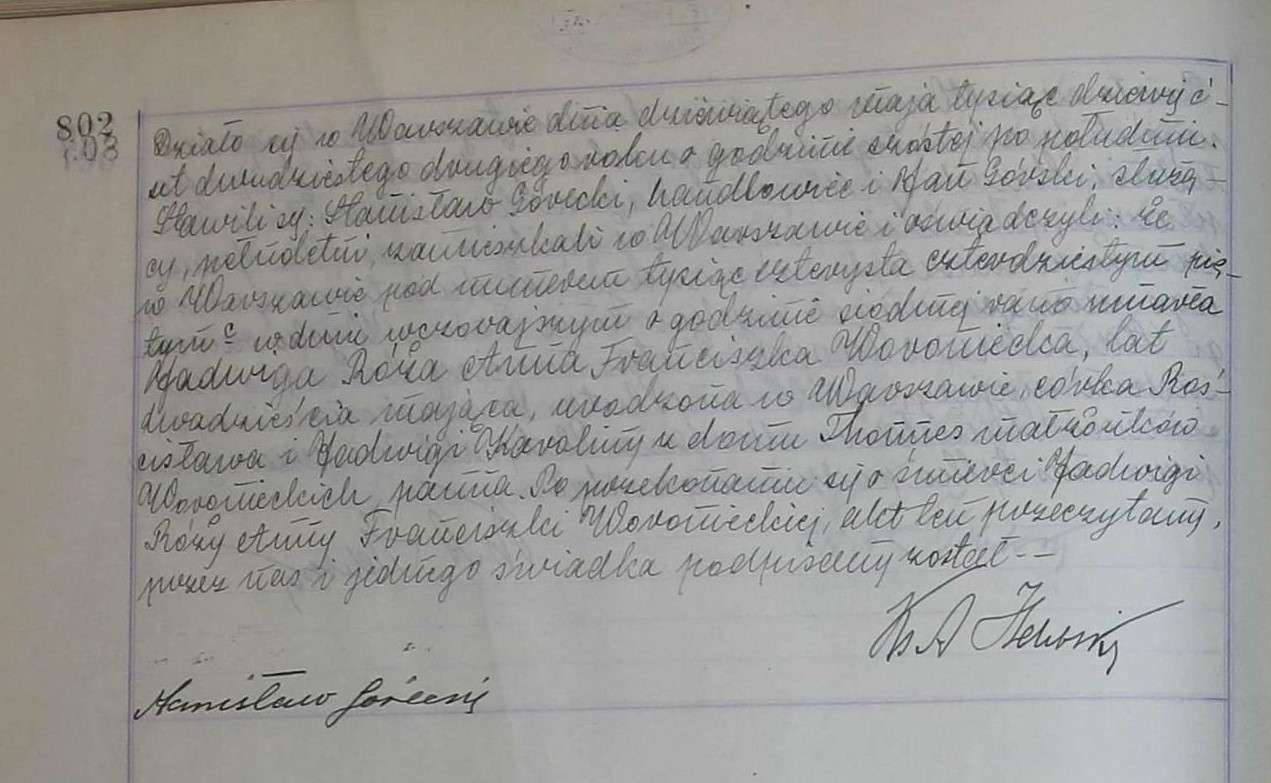 802
Działo się w Warszawie dnia dziewiątego maja tysiąc dziewięć-
set dwudziestego drugiego roku o godzinie szóstej po południu.
Stawili się: Stanisław Górecki, handlowiec i Jan Górski, służą-
cy, pełnoletni, zamieszkali w Warszawie i oświadczyli: że
w Warszawie pod numerem tysiąc czterysta czterdziestym pią-
tym c w dniu wczorajszym o godzinie siódmej rano zmarła
Jadwiga Róża Anna Franciszka Woroniecka, lat
dwadzieścia mająca, urodzona w Warszawie, córka Roś-
cisława i Jadwigi Karoliny z domu Thonnes małżonków
Woronieckich, panna. Po przekonaniu się o śmierci Jadwigi
Róży Anny Franciszki Woronieckiej, akt ten przeczytany,
przez nas i jednego świadka podpisany został --
Ks A
Stanisław Górecki